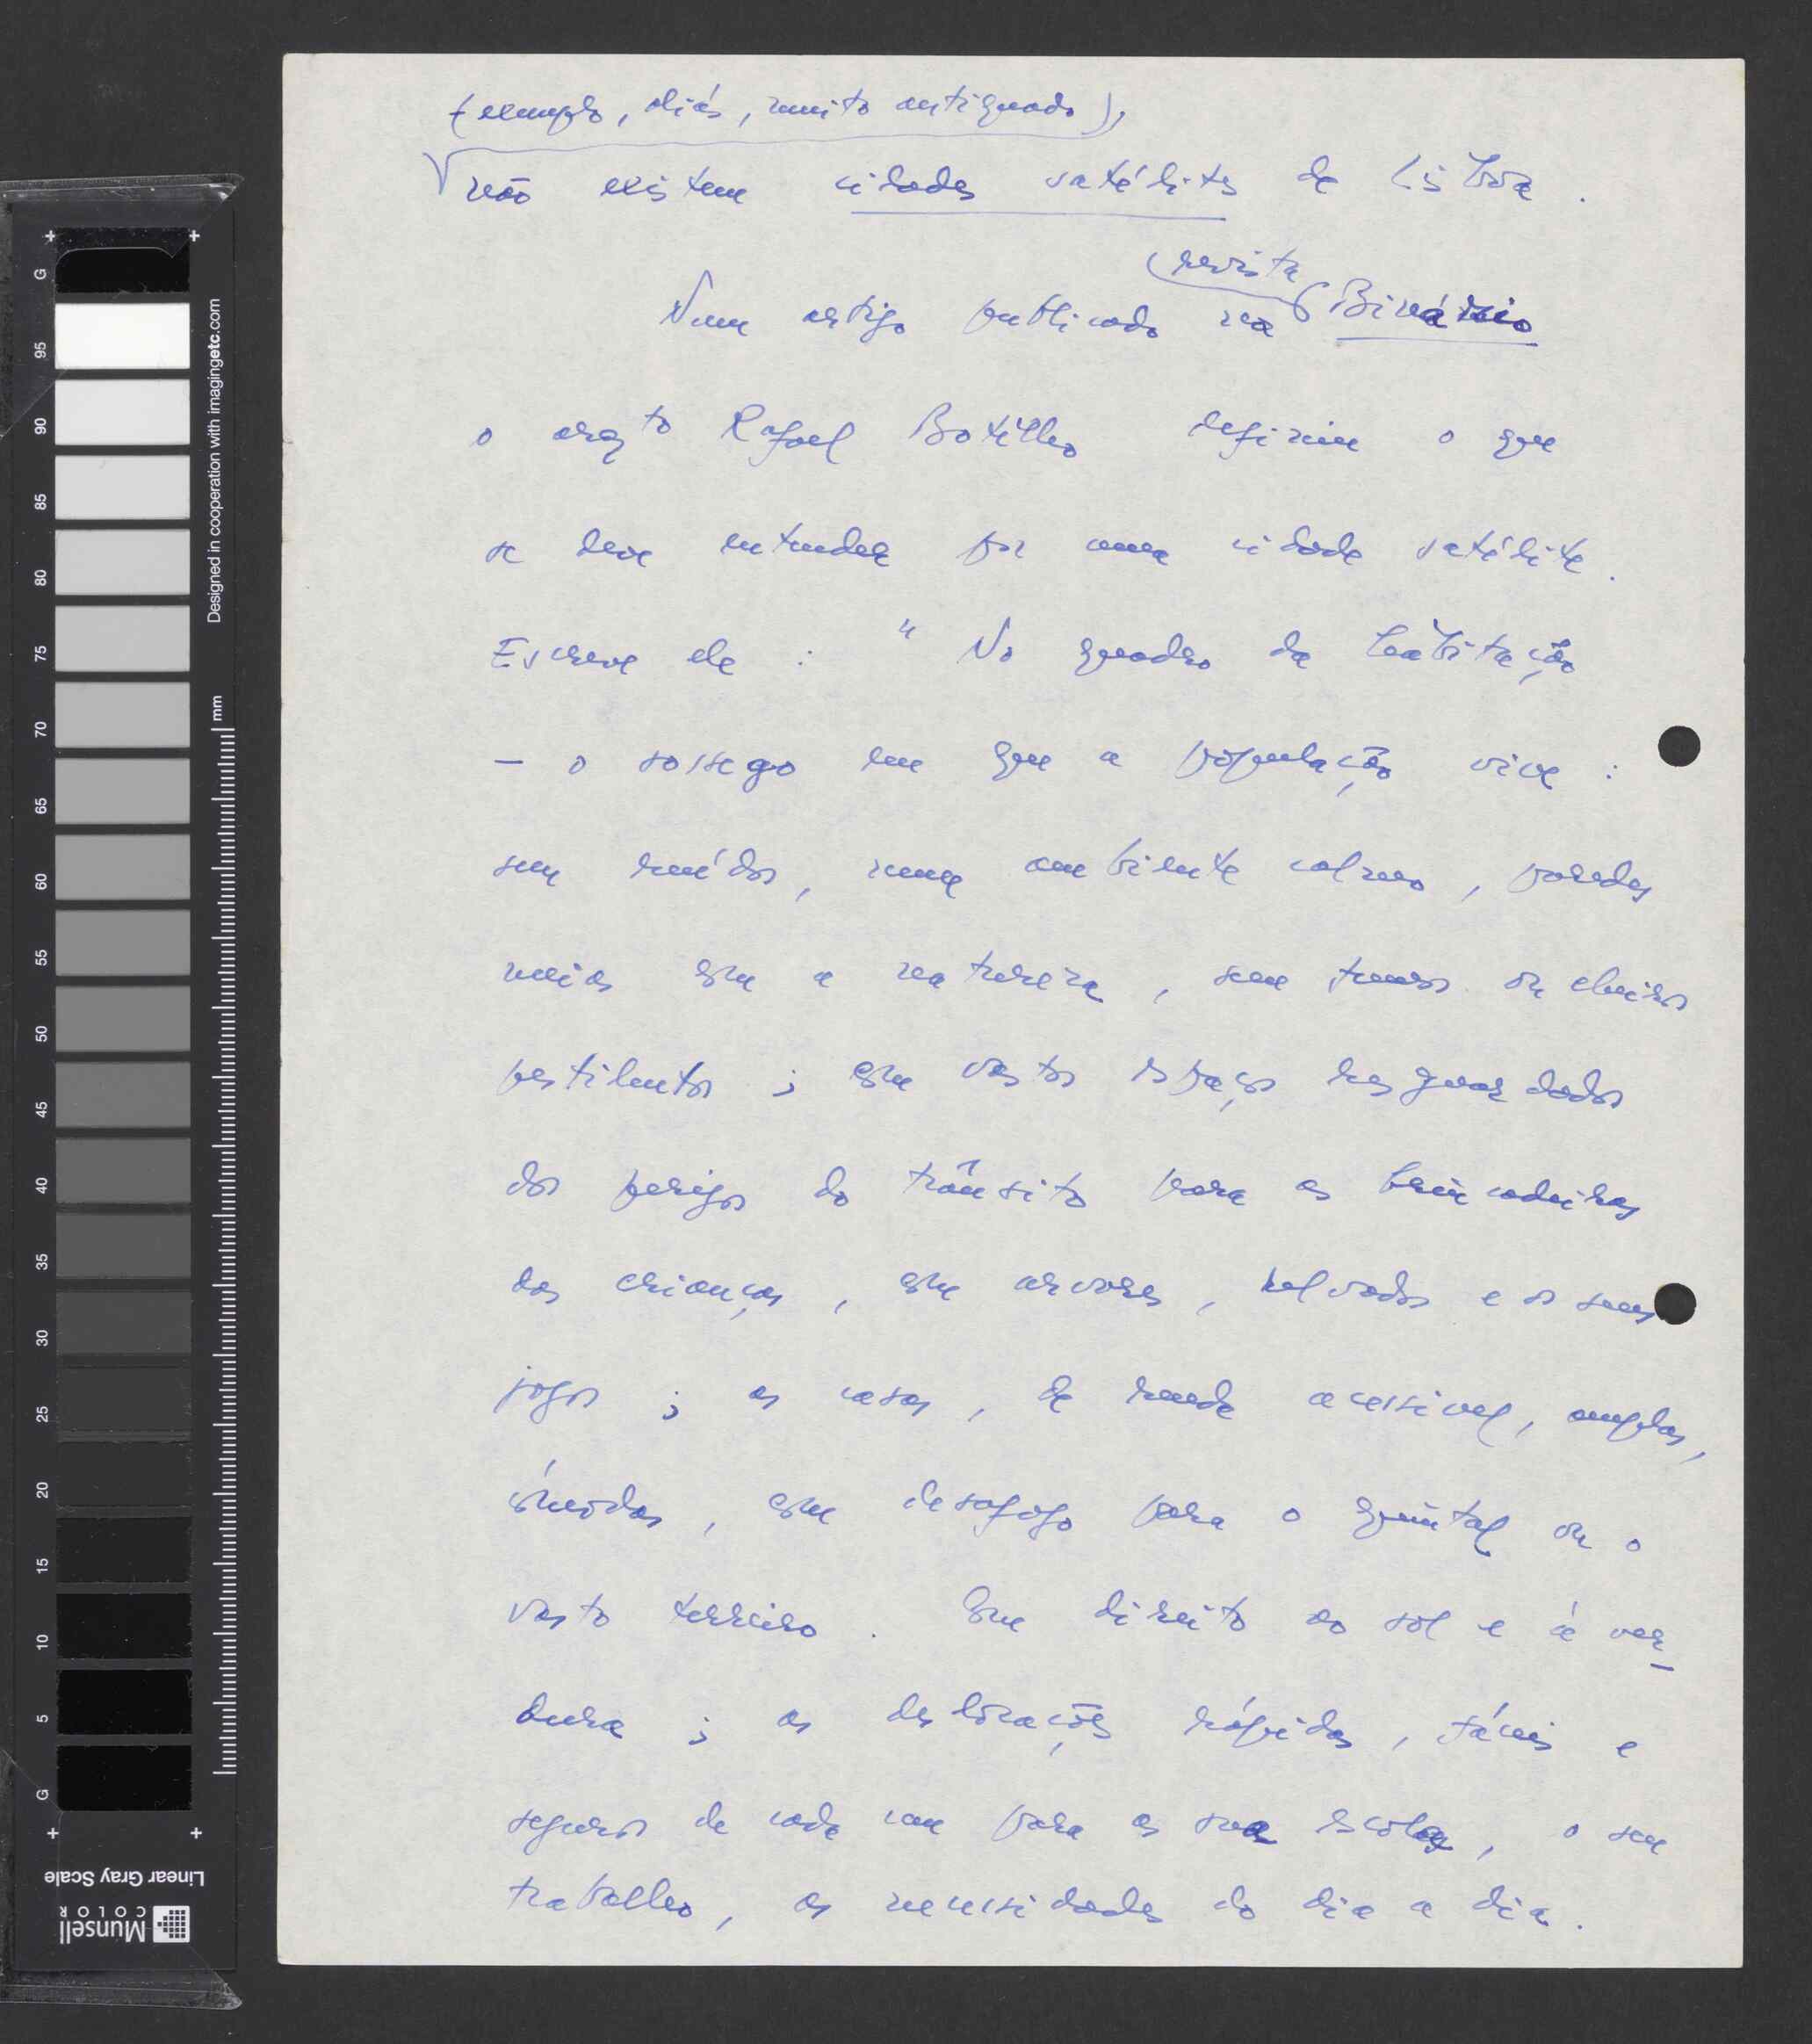 (exemplo, aliás, muito antiquado),
não existem cidades satélites de Lisboa.
(revista
Num artigo publicado na Binário
o arqto Rafael Botelho definiu o que
se deve entender por uma cidade satélite.
Escreve ele : "No quadro da habitação
— o sossego em que a população vive :
sem ruídos, num ambiente calmo, paredes
meias com a natureza, sem fumos ou cheiros
pestilentos ; com vastos espaços resguardados
dos perigos do trânsito para as brincadeiras
das crianças, com arvores, relvados e os seus
jogos ; as casas, de renda acessivel, amplas,
cómodas, com desafogo para o quintal ou o
vasto terreiro. Com direito ao sol e á ver-
dura ; as deslocações rápidas, fáceis e
seguras de cada um para as sua escola, o seu
trabalho, as necessidades do dia a dia.
G
95
90
85
80
75
70
65
60
55
50
45
40
35
30
25
20
15
10
5
G
mm
Designed in cooperation with imagingetc.com
Linear Gray Scale
Munsell
COLOR